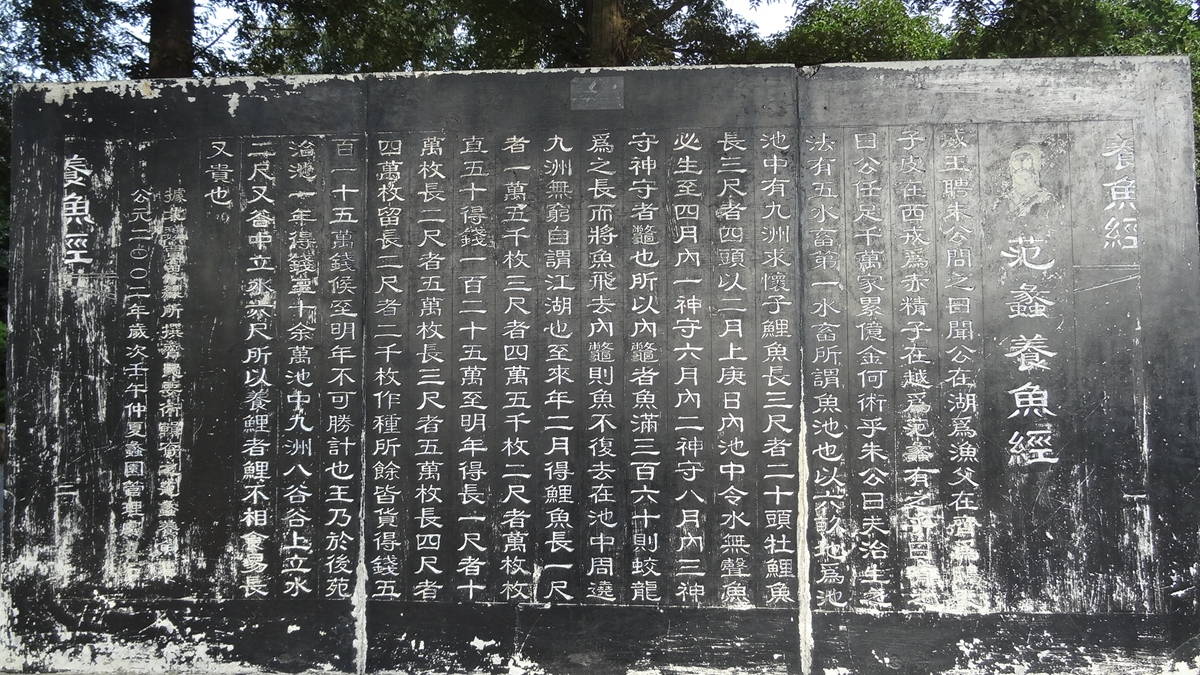 養魚經
一
范蠡養魚經
威王聘朱公問之曰聞公在湖爲漁父在齊爲
子皮在西戎爲赤精子在越爲范蠡有之乎曰有之
曰公任足千萬家累億金何術乎朱公曰夫治生之
法有五水畜第一水畜所謂魚池也以六畝地爲池
池中有九洲求懷子鯉魚長三尺者二十頭牡鯉魚
長三尺者四頭以二月上庚日內池中令水無聲魚
必生至四月內一神守六月內二神守八月內三神
守神守者鼈也所以內鼈者魚滿三百六十則蛟龍
爲之長而將魚飛去內鼈則魚不復去在池中周遶
九洲無窮自謂江湖也至來年二月得鯉魚長一尺
者一萬五千枚三尺者四萬五千枚二尺者萬枚枚
直五十得錢一百二十五萬至明年得長一尺者十
萬枚長二尺者五萬枚長三尺者五萬枚長四尺者
四萬枚留長二尺者二千枚作種所餘皆貨得錢五
百一十五萬錢候至明年不可勝計也王乃於後苑
治池一年得錢三十余萬池中九洲八谷谷上立水
二尺又谷中立水六尺所以養鯉者鯉不相食易長
又貴也
據北魏賈思勰所撰齊民要術輯錄之范蠡養魚
公元二〇〇二年歲次壬午仲夏蠡園管理
養魚經
二